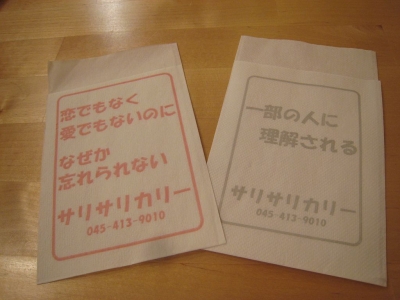 恋でもなく
愛でもないのに
なぜか
忘れられない
サリサリカリー
045-413-9010
一部の人に
理解される
サリサリカリー
045-413-9010